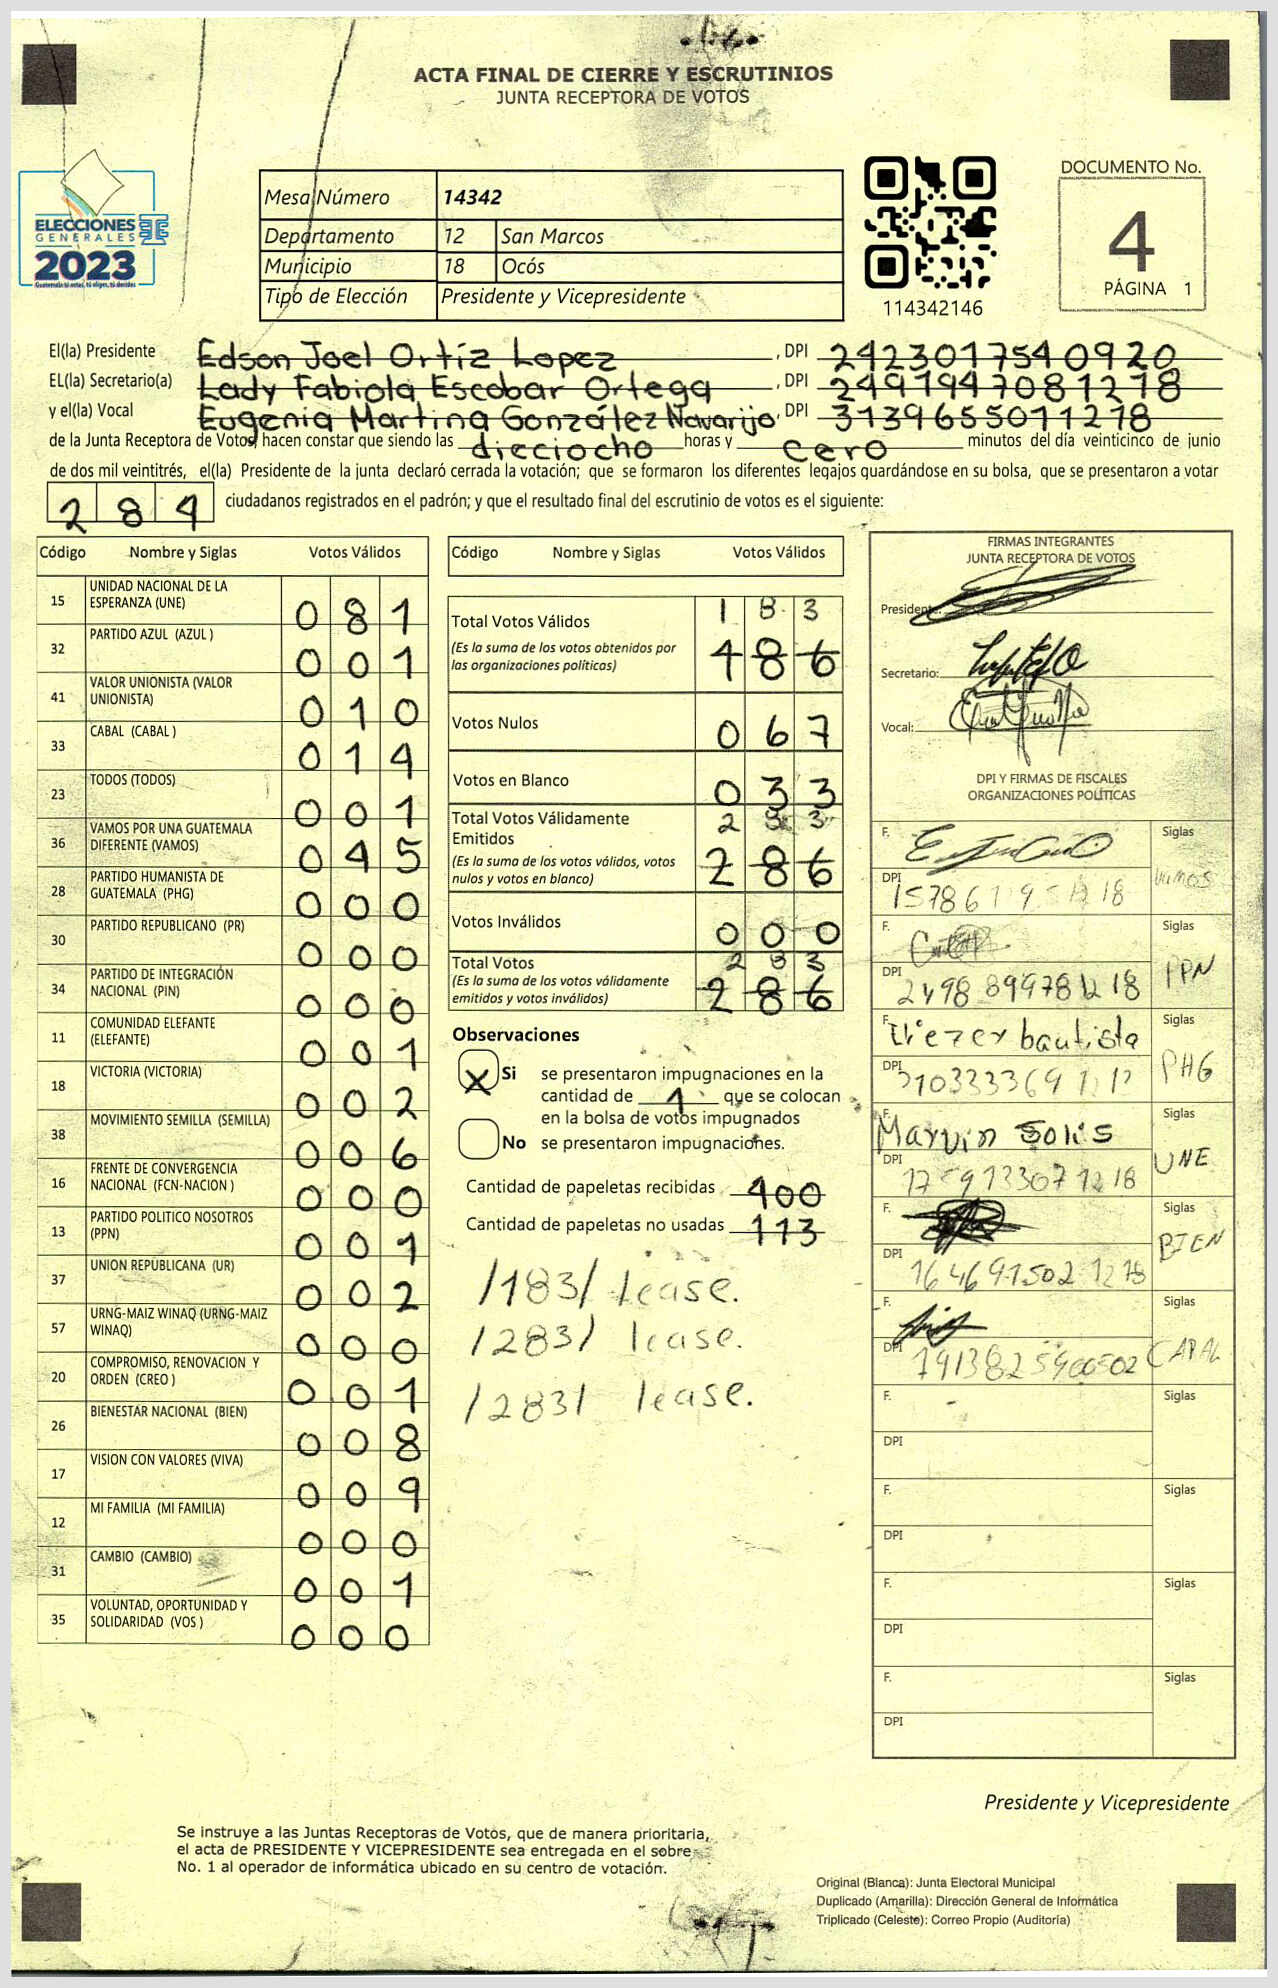 ACTA FINAL DE CIERRE Y ESCRUTINIOS
JUNTA RECEPTORA DE VOTOS
ELECCIONES
GENERALES
2023
Guatemala tú votas, tú eliges, tú decides
Mesa Número 14342
Departamento 12 San Marcos
Municipio 18 Ocós
Tipo de Elección Presidente y Vicepresidente
114342146
DOCUMENTO No.
4
PÁGINA 1
El(la) Presidente Edson Joel Ortíz Lopez , DPI 2423017540920
EL(la) Secretario(a) Lady Fabiola Escobar Ortega , DPI 2491947081218
y el(la) Vocal Eugenia Martina González Navarijo , DPI 3139655011218
de la Junta Receptora de Votos, hacen constar que siendo las dieciocho horas y cero minutos del día veinticinco de junio
de dos mil veintitrés, el(la) Presidente de la junta declaró cerrada la votación; que se formaron los diferentes legajos guardándose en su bolsa, que se presentaron a votar
284 ciudadanos registrados en el padrón; y que el resultado final del escrutinio de votos es el siguiente:
Código Nombre y Siglas Votos Válidos
15 UNIDAD NACIONAL DE LA ESPERANZA (UNE) 081
32 PARTIDO AZUL (AZUL ) 001
41 VALOR UNIONISTA (VALOR UNIONISTA) 010
33 CABAL (CABAL ) 014
23 TODOS (TODOS) 001
36 VAMOS POR UNA GUATEMALA DIFERENTE (VAMOS) 045
28 PARTIDO HUMANISTA DE GUATEMALA (PHG) 000
30 PARTIDO REPUBLICANO (PR) 000
34 PARTIDO DE INTEGRACIÓN NACIONAL (PIN) 000
11 COMUNIDAD ELEFANTE (ELEFANTE) 001
18 VICTORIA (VICTORIA) 002
38 MOVIMIENTO SEMILLA (SEMILLA) 006
16 FRENTE DE CONVERGENCIA NACIONAL (FCN-NACION ) 000
13 PARTIDO POLITICO NOSOTROS (PPN) 001
37 UNION REPUBLICANA (UR) 002
57 URNG-MAIZ WINAQ (URNG-MAIZ WINAQ) 000
20 COMPROMISO, RENOVACION Y ORDEN (CREO ) 001
26 BIENESTAR NACIONAL (BIEN) 008
17 VISION CON VALORES (VIVA) 009
12 MI FAMILIA (MI FAMILIA) 000
31 CAMBIO (CAMBIO) 001
35 VOLUNTAD, OPORTUNIDAD Y SOLIDARIDAD (VOS ) 000
Código Nombre y Siglas Votos Válidos
Total Votos Válidos 183
(Es la suma de los votos obtenidos por
las organizaciones políticas) 186
Votos Nulos 067
Votos en Blanco 033
Total Votos Válidamente 283
Emitidos
(Es la suma de los votos válidos, votos
nulos y votos en blanco) 286
Votos Inválidos 000
Total Votos 283
(Es la suma de los votos válidamente
emitidos y votos inválidos) 286
Observaciones
X Si se presentaron impugnaciones en la
cantidad de 1 que se colocan
en la bolsa de votos impugnados
No se presentaron impugnaciones.
Cantidad de papeletas recibidas 400
Cantidad de papeletas no usadas 113
/183/ lease.
/283/ lease.
/283/ lease.
FIRMAS INTEGRANTES
JUNTA RECEPTORA DE VOTOS
Presidente:
Secretario:
Vocal:
DPI Y FIRMAS DE FISCALES
ORGANIZACIONES POLÍTICAS
F. Siglas
DPI vamos
F. Siglas
DPI 2498 899781218 PPN
F. Eliezer bautista Siglas
DPI PHG
F. Marvin Solis Siglas
DPI UNE
F. Siglas
DPI 1646915021218 BIEN
F. Siglas
DPI 1913825900502 CAPAL
F. Siglas
DPI
F. Siglas
DPI
F. Siglas
DPI
F. Siglas
DPI
Presidente y Vicepresidente
Se instruye a las Juntas Receptoras de Votos, que de manera prioritaria,
el acta de PRESIDENTE Y VICEPRESIDENTE sea entregada en el sobre
No. 1 al operador de informática ubicado en su centro de votación.
Original (Blanca): Junta Electoral Municipal
Duplicado (Amarilla): Dirección General de Informática
Triplicado (Celeste): Correo Propio (Auditoría)